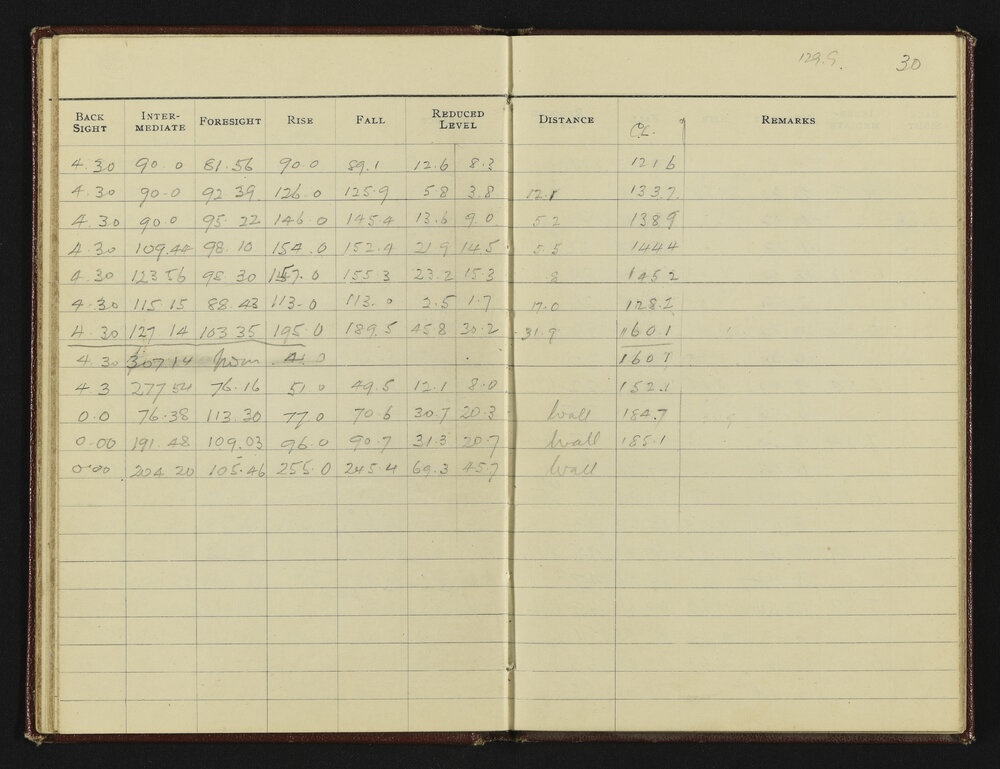 129.9. 30
BACK SIGHT INTER-MEDIATE FORESIGHT RISE FALL REDUCED LEVEL DISTANCE C.L. REMARKS
4.30 90.0 81.56 90.0 89.1 12.6 8.3 121.6
4.30 90.0 92.39 126.0 125.9 5.8 3.8 12.1 133.7
4.30 90.0 95.22 146.0 145.4 13.6 9.0 5.2 138.9
4.30 109.44 98.10 154.0 152.4 21.9 14.5 5.5 144.4
4.30 123.56 98.30 157.0 155.3 23.2 15.3 .8 145.2
4.30 115.15 88.43 113.0 113.0 2.5 1.7 17.0 128.2
4.30 127.14 103.35 195.0 189.5 45.8 30.2 31.9 160.1
4.30 307.14 from 4.0 160.1
4.3 277.54 76.16 51.0 49.5 12.1 8.0 152.1
0.0 76.38 113.30 77.0 70.6 30.7 20.3 Wall 184.7
0.00 191.48 109.03 96.0 90.7 31.3 20.7 Wall 185.1
0.00 204.20 105.46 255.0 245.4 69.3 45.7 Wall